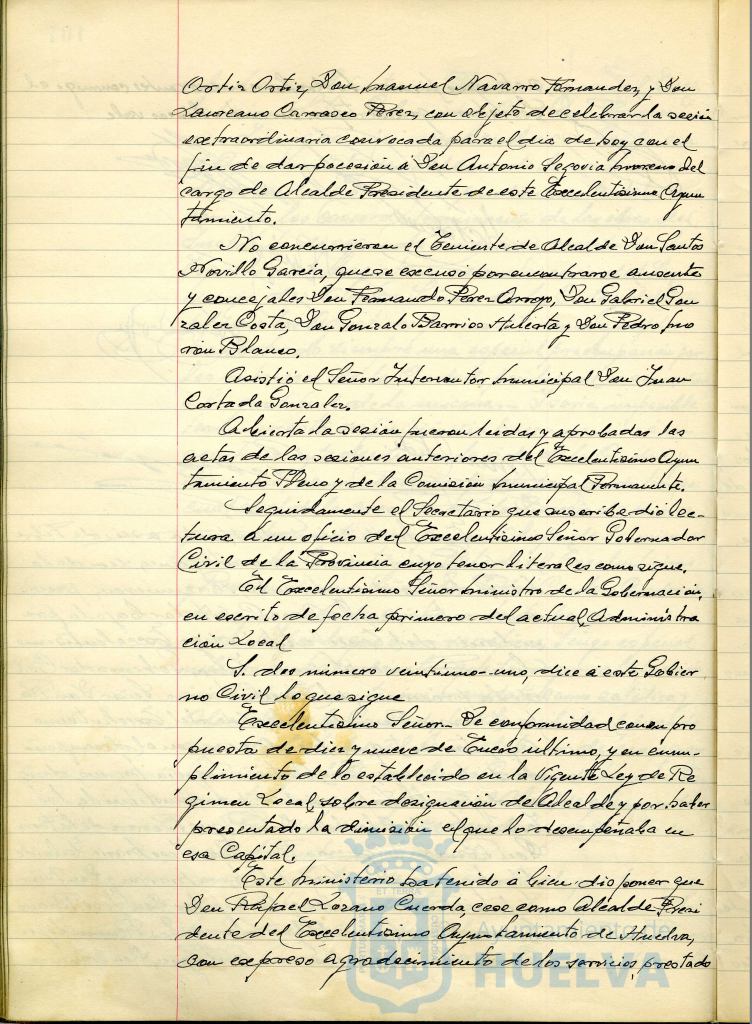 Ortiz Ortiz, Don Manuel Navarro Fernandez, y Don
Laureano Carrasco Perez, con objeto de celebrar la sesión
extraordinaria convocada para el dia de hoy con el
fin de dar pocesión á Don Antonio Segovia Moreno del
cargo de Alcalde Presidente de este Excelentisimo Ayun
tamiento.
No concurrieron el Teniente de Alcalde Don Santos
Novillo Garcia, que se excusó por encontrarse ausente
y concejales Don Fernando Perez Arroyo, Don Gabriel Gon
zalez Costa, Don Gonzalo Barrios Huerta y Don Pedro Mo
rón Blanco.
Asistió el Señor Interventor Municipal Don Juan
Cortada Gonzalez.
Abierta la sesión fueron leidas y aprobadas las
actas de las sesiones anteriores del Excelentisimo Ayun
tamiento Pleno y de la Comisión Municipal Permanente.
Seguidamente el Secretario que suscribe dió lec-
tura á un oficio del Excelentisimo Señor Gobernador
Civil de la Provincia cuyo tenor literal es como sigue.
El Excelentisimo Señor Ministro de la Gobernación,
en escrito de fecha primero del actual, Administra
ción Local
S. dos numero veintiuno-uno, dice á este Gobier
no Civil lo que sigue
Excelentisimo Señor- De conformidad con su pro
puesta de diez y nueve de Enero último, y en cum-
plimiento de lo establecido en la Vigente Ley de Re
gimen Local, sobre designación de Alcalde y por haber
presentado la dimisión el que lo desempeñaba en
esa Capital.
Este Ministerio ha tenido á bien disponer que
Don Rafael Lozano Cuerda, cese como Alcalde Presi
dente del Excelentisimo Ayuntamiento de Huelva,
con expreso agradecimiento de los servicios prestado
Ayuntamiento de
HUELVA